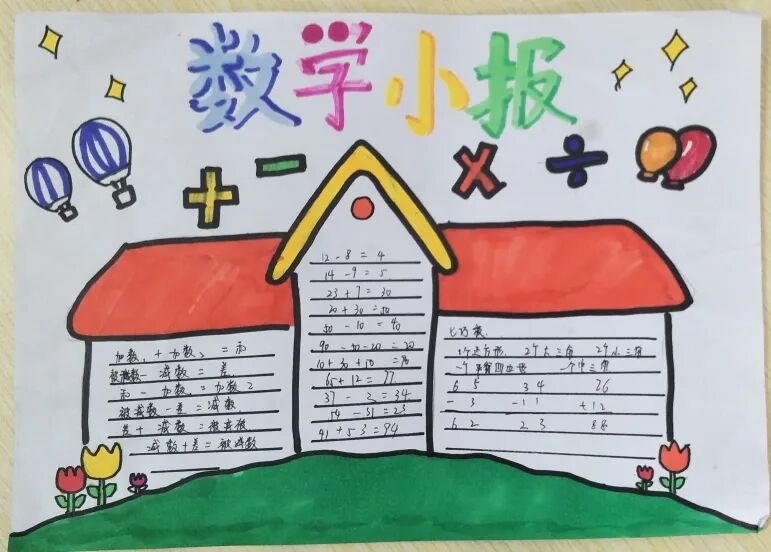 数学小报
+ - × ÷
加数₁ + 加数₂ = 和
被减数 - 减数 = 差
和 - 加数₁ = 加数2
被减数 - 差 = 减数
差 + 减数 = 被减数
减数 + 差 = 被减数
12 - 8 = 4
14 - 9 = 5
23 + 7 = 30
20 + 30 = 50
50 - 10 = 40
90 - 50 - 20 = 20
10 + 30 + 50 = 90
65 + 12 = 77
37 - 2 = 34
54 - 31 = 23
41 + 53 = 94
七巧板
1个正方形 2个大三角 2个小三角
一个平行四边形 一个中三角
65 34 76
- 3 - 11 + 12
62 23 88